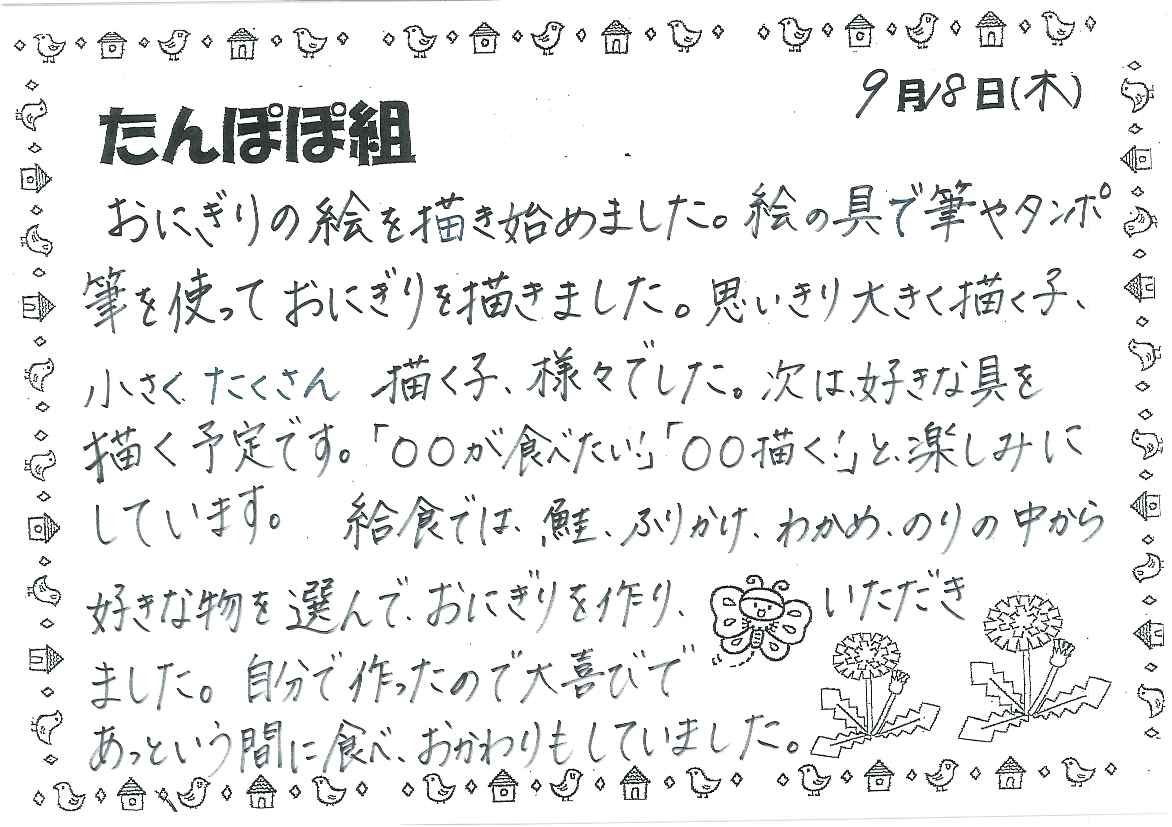 9月18日(木)
たんぽぽ組
おにぎりの絵を描き始めました。絵の具で筆やタンポ
筆を使っておにぎりを描きました。思いきり大きく描く子、
小さくたくさん 描く子、様々でした。次は、好きな具を
描く予定です。「○○が食べたい!」「○○描く!」と、楽しみに
しています。 給食では、鮭、ふりかけ、わかめ、のりの中から
好きな物を選んで、おにぎりを作り、 いただき
ました。自分で作ったので大喜びで
あっという間に食べ、おかわりもしていました。